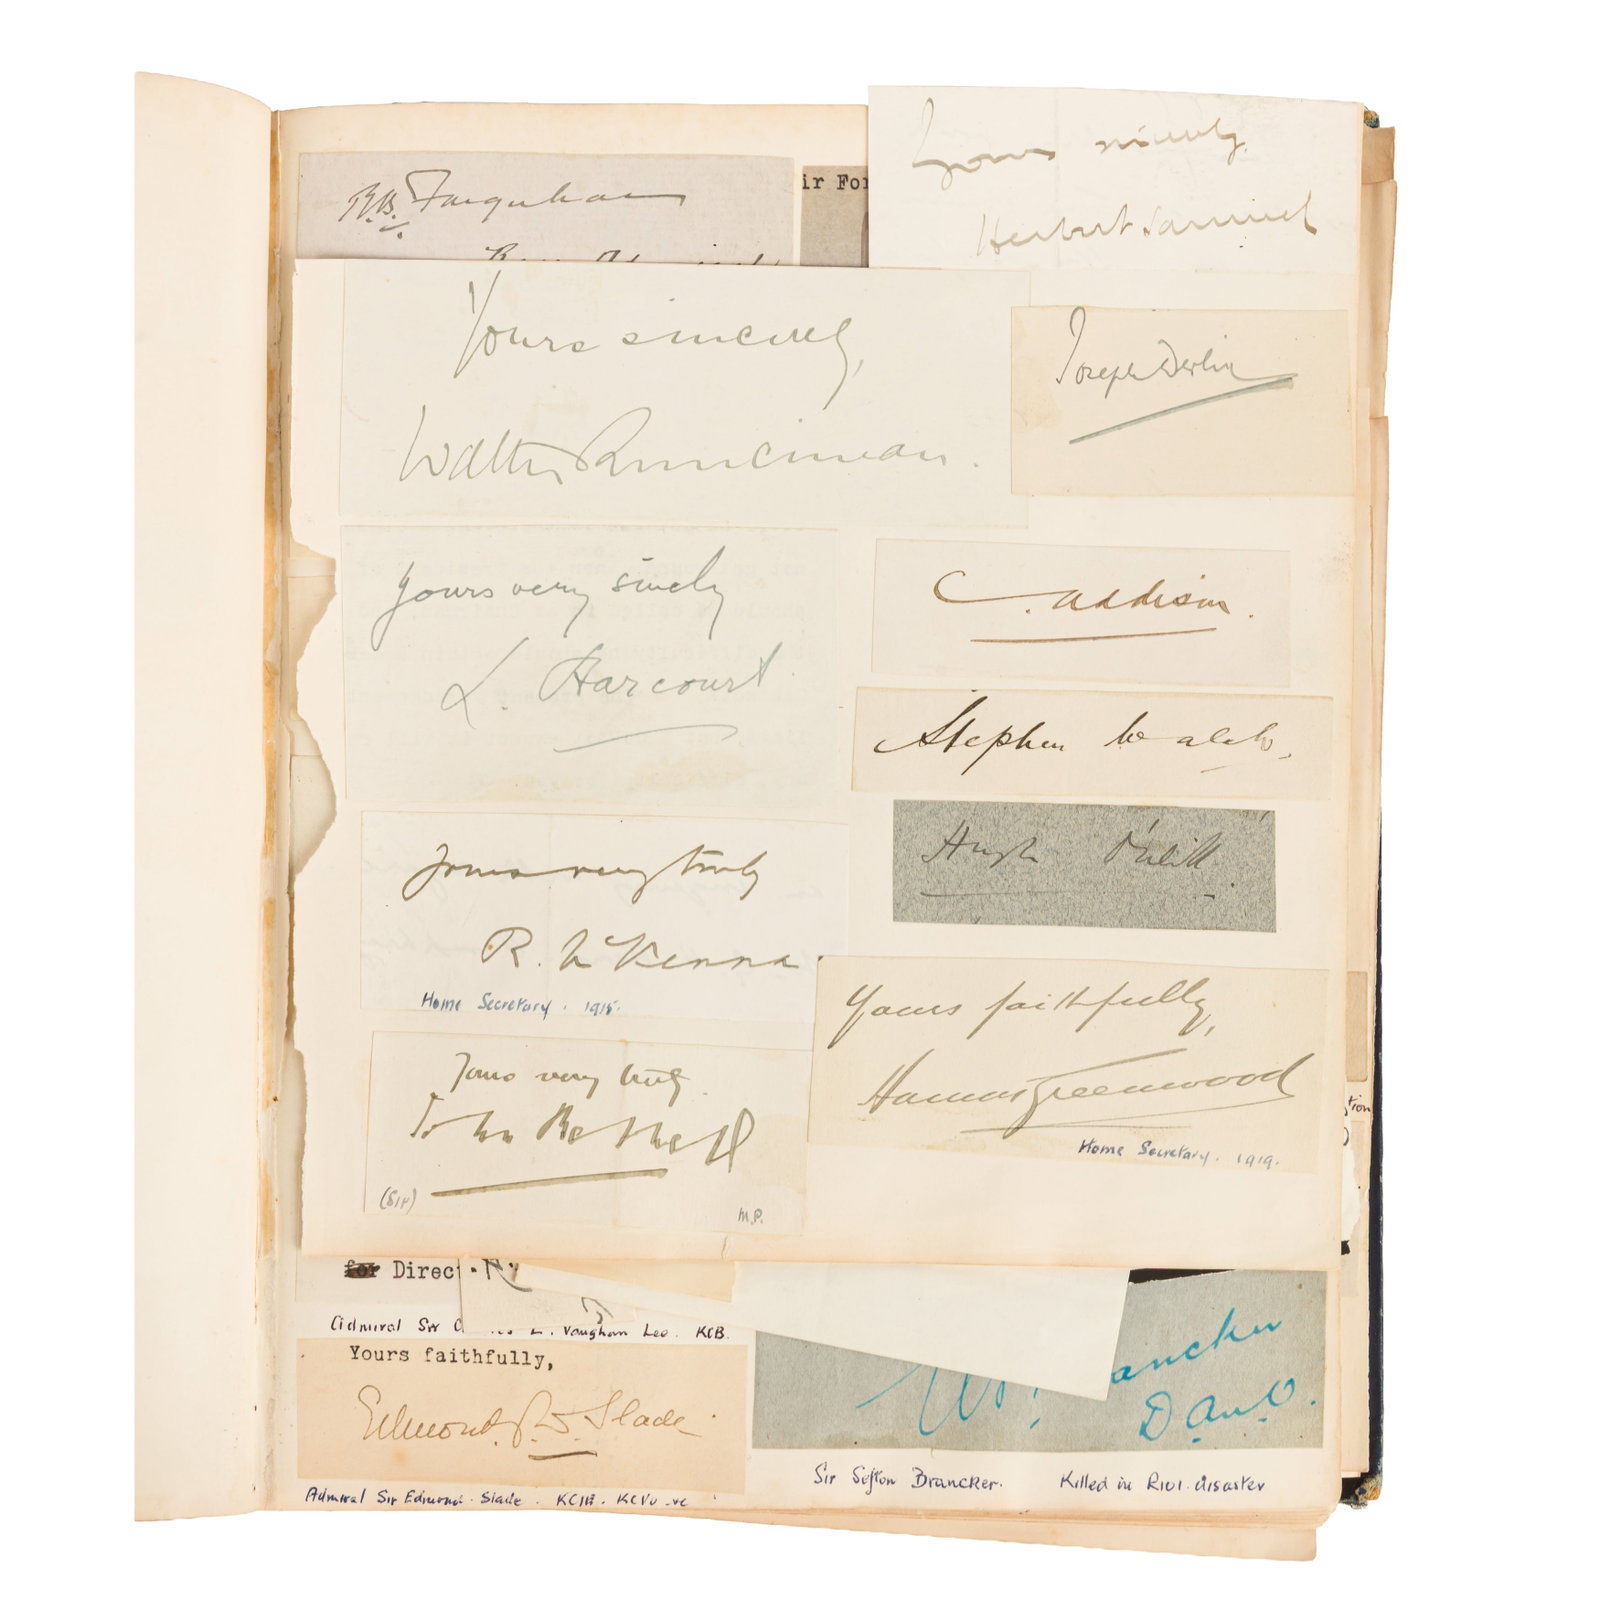 R.B. Farquhar
ir For
Yours sincerely
Herbert Samuel
Yours sincerely,
Walter Runciman.
Joseph Devlin
Yours very sincely
L. Harcourt
C. Addison.
Stephen Walsh.
Hugh O'Neill.
Yours very truly
R. McKenna
Home Secretary. 1915.
Yours faithfully,
Hamar Greenwood
Home Secretary. 1919.
Yours very truly
John Bethell
(Sir)
M.P.
tion
for Direc
Admiral Sir C L. Vaughan Lee. KCB.
Yours faithfully,
Edmond J.W. Slade.
Admiral Sir Edmond. Slade. KCIE. KCVO
W. ancker
D.Av.O.
Sir Sefton Brancker. Killed in R101. disaster